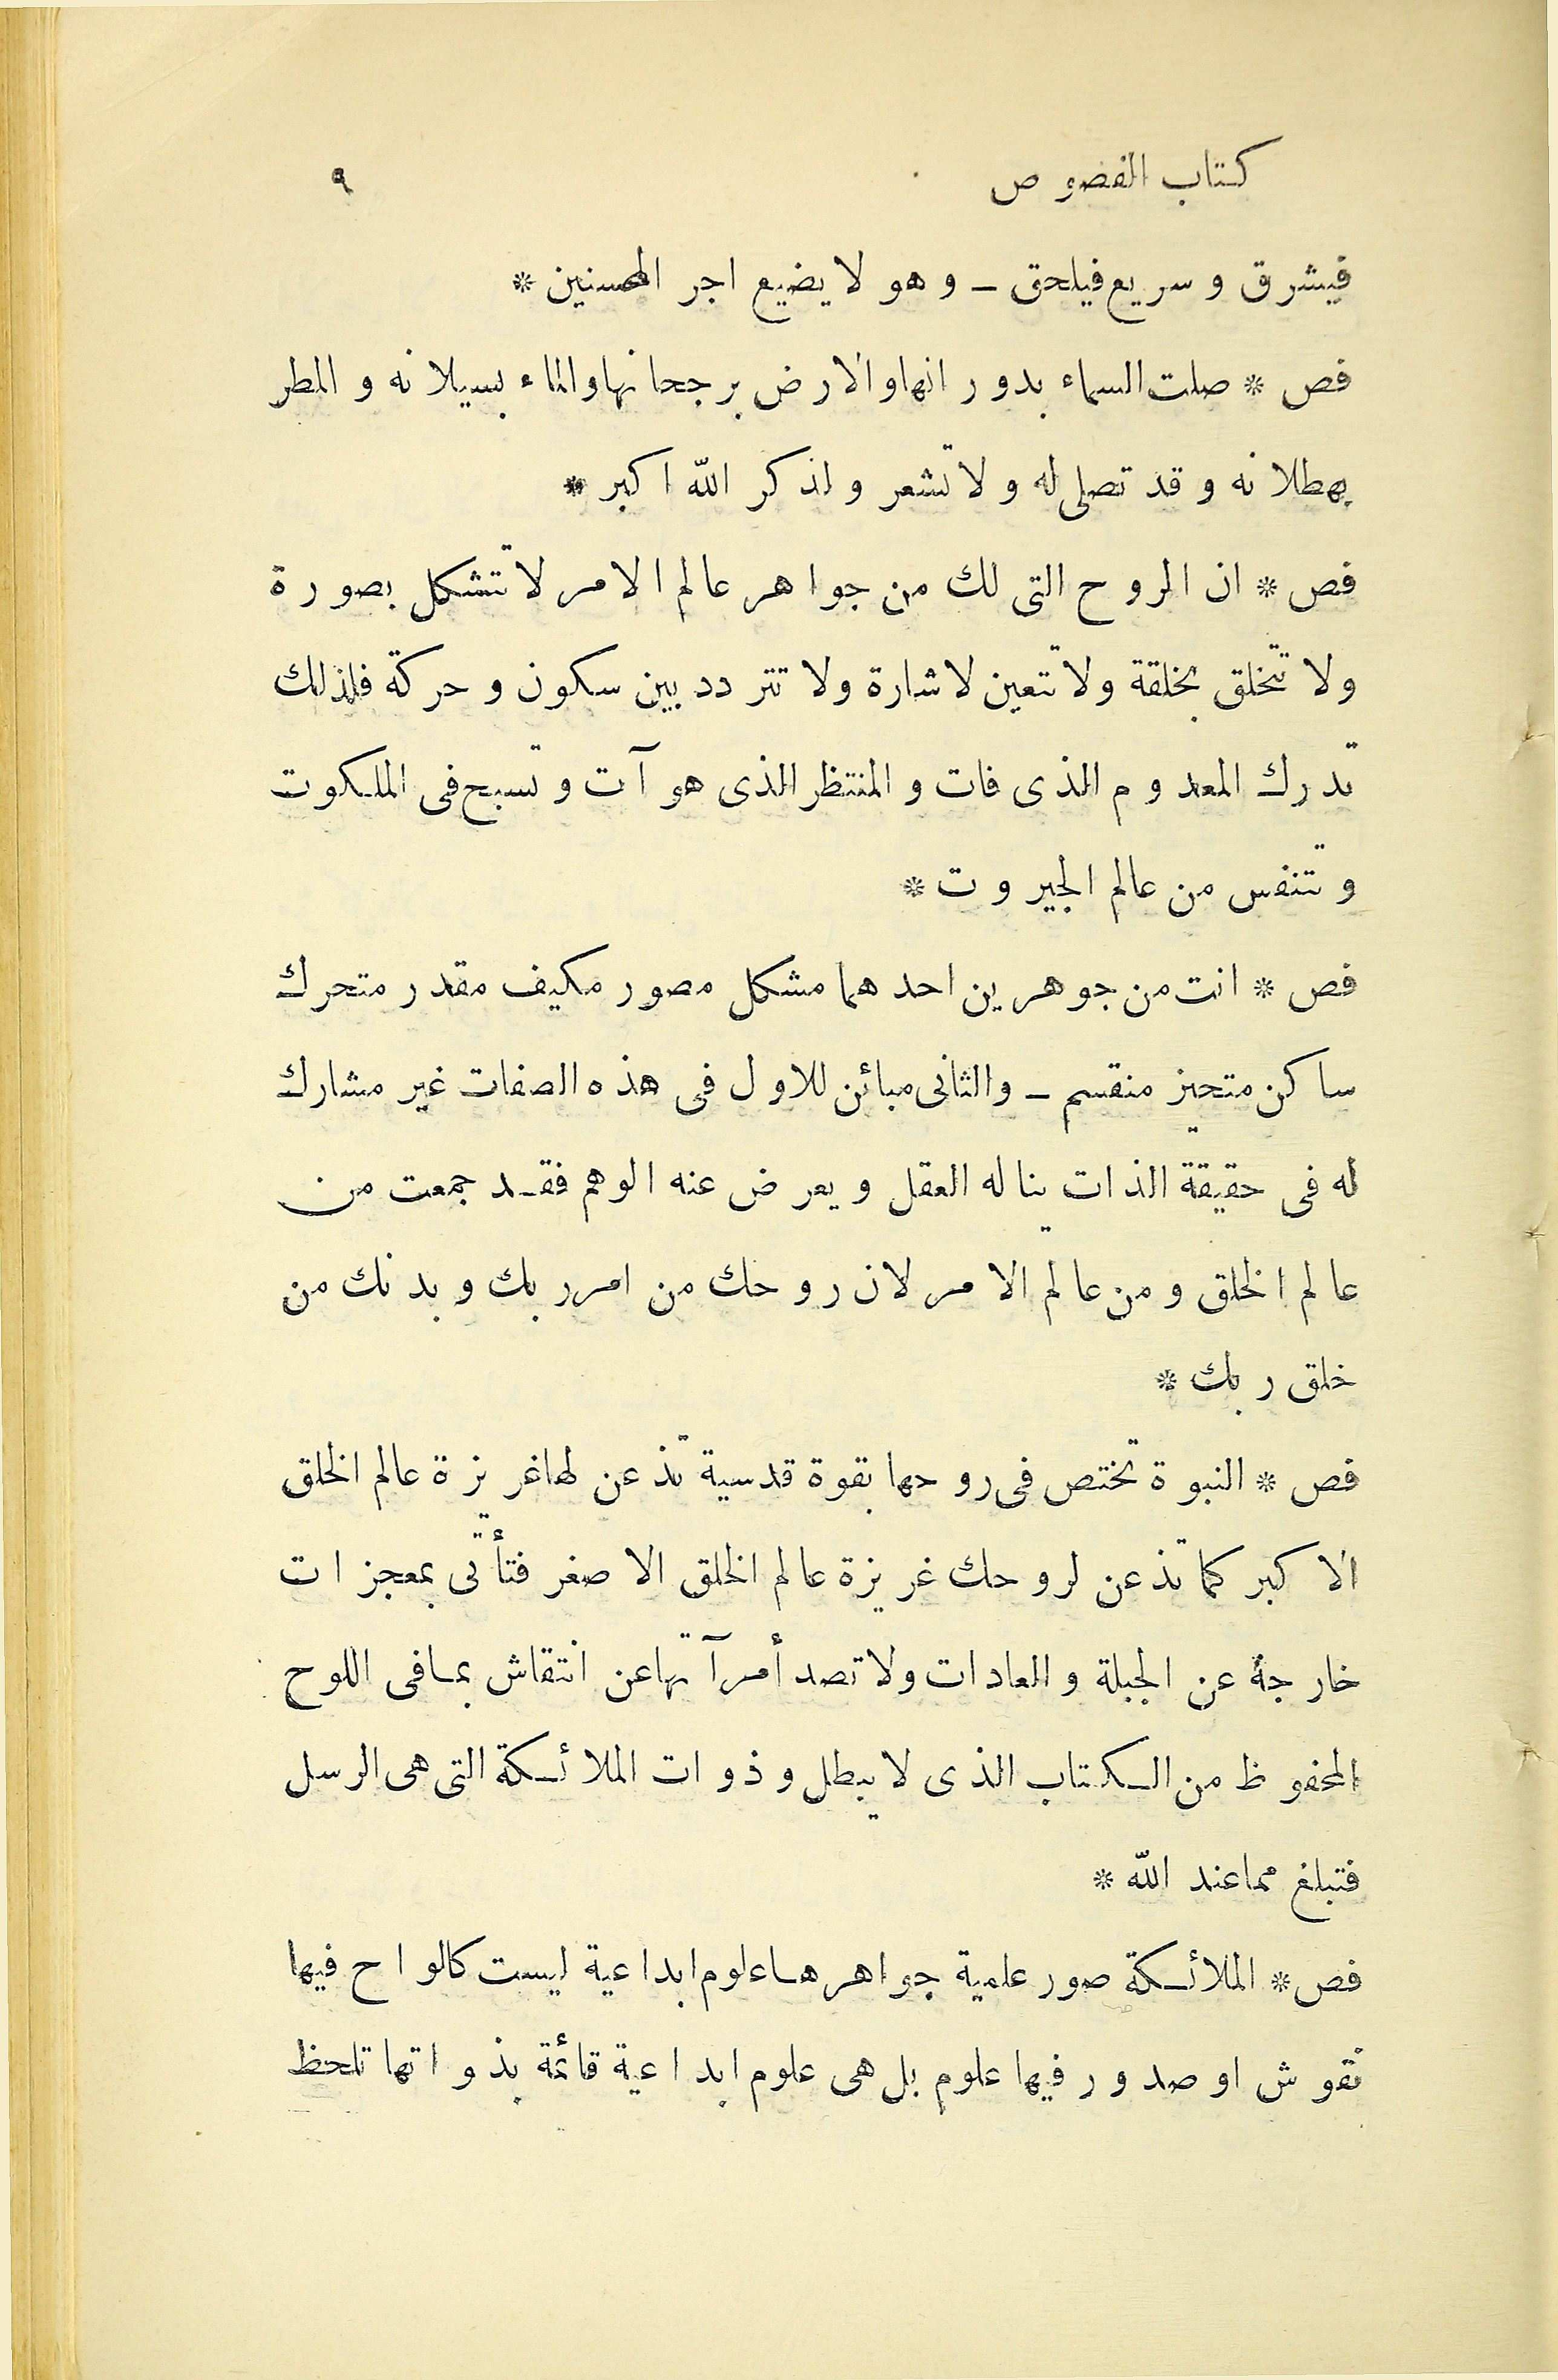 كتاب الفصوص ٩
فيشرق وسريع فيلحق ـ وهو لا يضيع اجر المحسنين *
فص * صلت السماء بدورانها والارض برجحانها والماء بسيلانه والمطر
بهطلانه وقد تصلى له ولا تشعر ولذكر الله اكبر *
فص * ان الروح التى لك من جواهر عالم الامر لا تتشكل بصورة
ولا تتخلق بخلقة ولا تتعين لاشارة ولا تتردد بين سكون وحركة فلذلك
تدرك المعدوم الذى فات والمنتظر الذى هو آت وتسبح فى الملكوت
وتتنفس من عالم الجبروت *
فص * انت من جوهرين احدهما مشكل مصور مكيف مقدر متحرك
ساكن متحيز منقسم ـ والثانى مبائن للاول فى هذه الصفات غير مشارك
له فى حقيقة الذات يناله العقل ويعرض عنه الوهم فقد جمعت من
عالم الخلق ومن عالم الامر لان روحك من امر ربك وبدنك من
خلق ربك *
فص * النبوة تختص فى روحها بقوة قدسية تذعن لها غريزة عالم الخلق
الاكبر كما تذعن لروحك غريزة عالم الخلق الاصغر فتأتى بمعجزات
خارجة عن الجبلة والعادات ولا تصدأ مرآتها عن انتقاش بما فى اللوح
المحفوظ من الكتاب الذى لا يبطل وذوات الملائكة التى هى الرسل
فتبلغ مما عند الله *
فص * الملائكة صور علمية جواهرها علوم ابداعية ليست كالواح فيها
نقوش او صدور فيها علوم بل هى علوم ابداعية قائمة بذواتها تلحظ